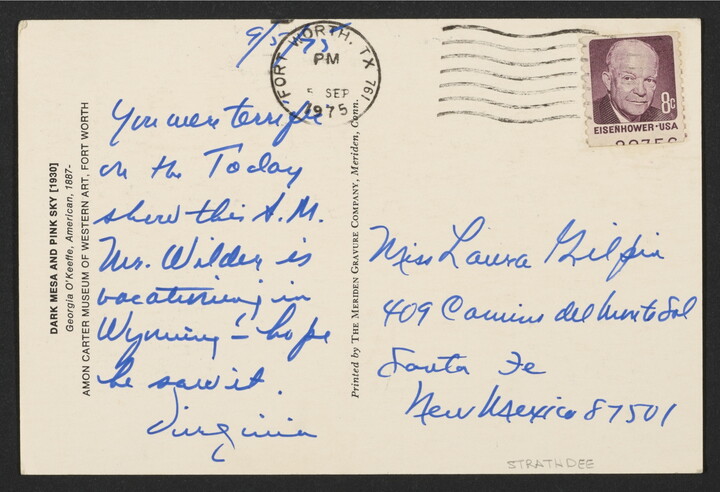 9/5/75
FORT WORTH, TX 761
PM
5 SEP
1975
8c
EISENHOWER·USA
DARK MESA AND PINK SKY [1930]
Georgia O'Keeffe, American, 1887-
AMON CARTER MUSEUM OF WESTERN ART, FORT WORTH
You were terrific
on the Today
show this A.M.
Mr. Wilder is
vacationing in
Wyoming – hope
he saw it.
Virginia
Printed by THE MERIDEN GRAVURE COMPANY, Meriden, Conn.
Miss Laura Gilpin
409 Camino del Monte Sol
Santa Fe
New Mexico 87501
STRATHDEE